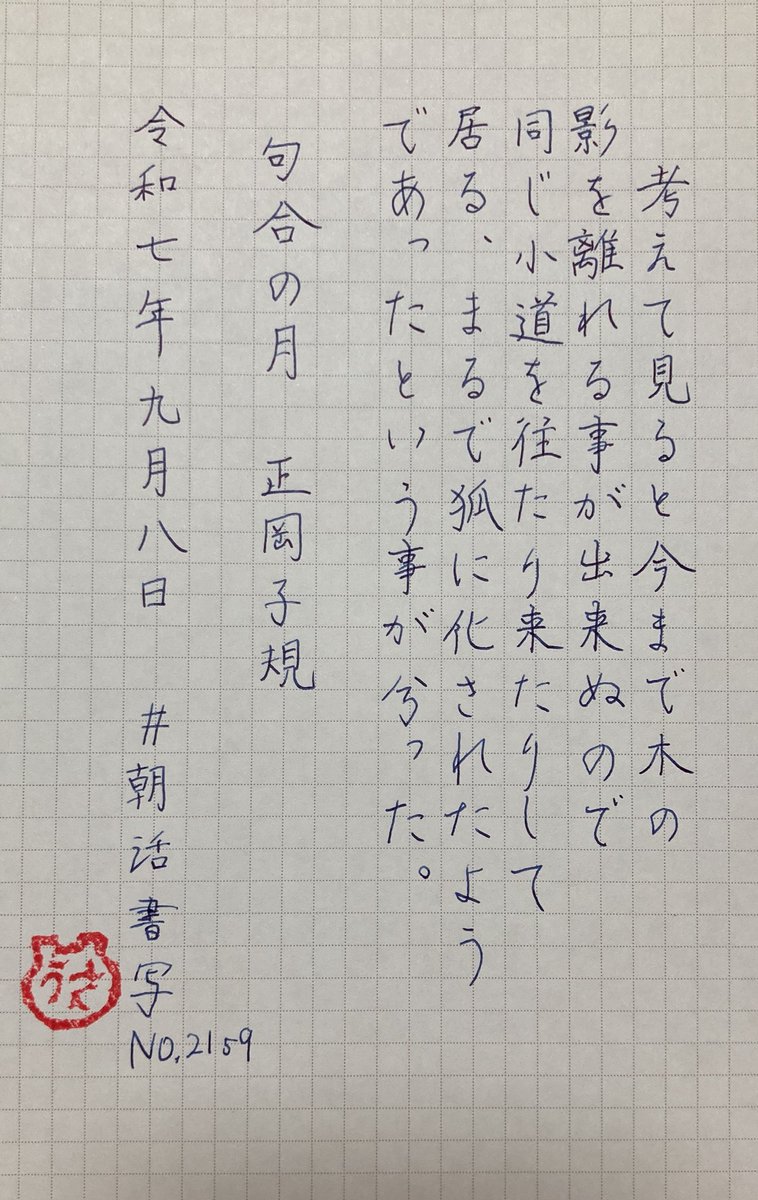 考えて見ると今まで木の
影を離れる事が出来ぬので
同じ小道を往たり来たりして
居る、まるで狐に化されたよう
であったという事が分った。
句合の月 正岡子規
令和七年九月八日 #朝活書写
NO.2159